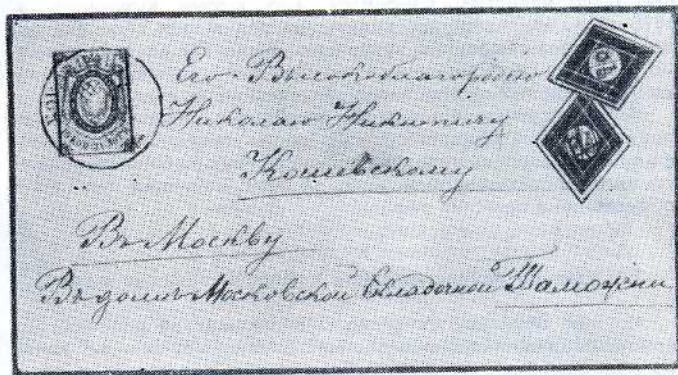 Его Высокоблагородію
Николаю Никитичу
Кошевскому
Въ Москву
Въ домъ Московской Складочной Таможни